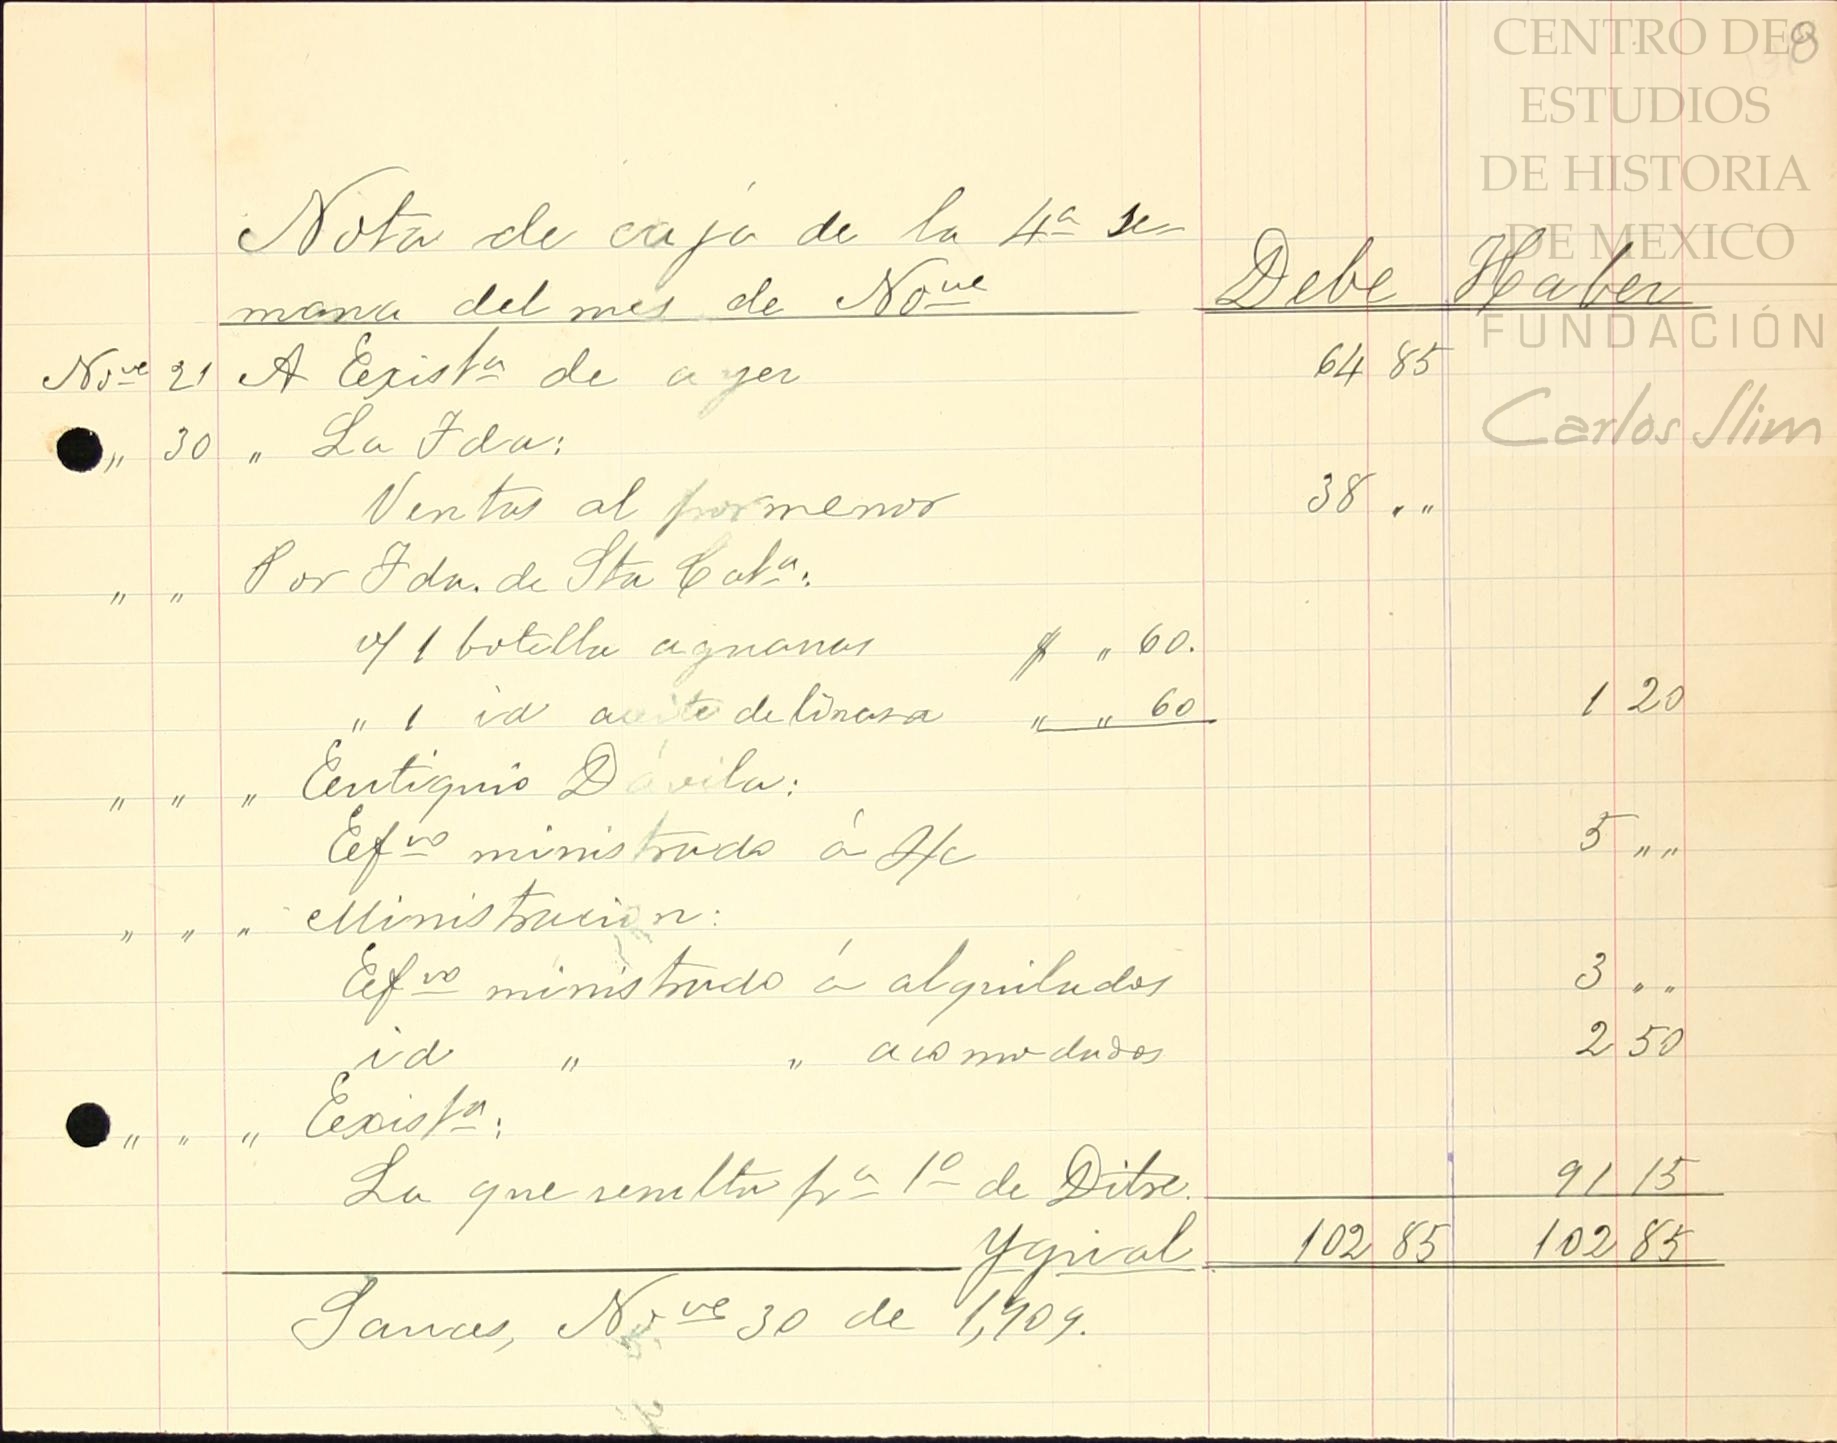 8
CENTRO DE
ESTUDIOS
DE HISTORIA
DE MEXICO
FUNDACIÓN
Carlos Slim
Nota de caja de la 4ª se-
mana del mes de Noᵛᵉ Debe Haber
Noᵛᵉ 21 A Existᵃ de ayer 64 85
" 30 " La Fda:
Ventas al por menor 38 " "
" " Por Fda. de Sta Catᵃ:
v/ 1 botella aguarras $ " 60.
" 1 id aceite de linasa " " 60 1 20
" " " Eutiquio Dávila:
Efᵛᵒ ministrado á s/c 5 " "
" " " Ministracion:
Efᵛᵒ ministrado á alquilados 3 " "
id " " acomodados 2 50
" " " Existᵃ:
La que resulta pᵃ 1º de Ditre. 91 15
Ygual 102 85 102 85
Noᵛᵉ 30 de 1,909.